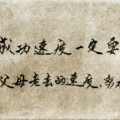 成功速度一定要
父母老去的速度，努